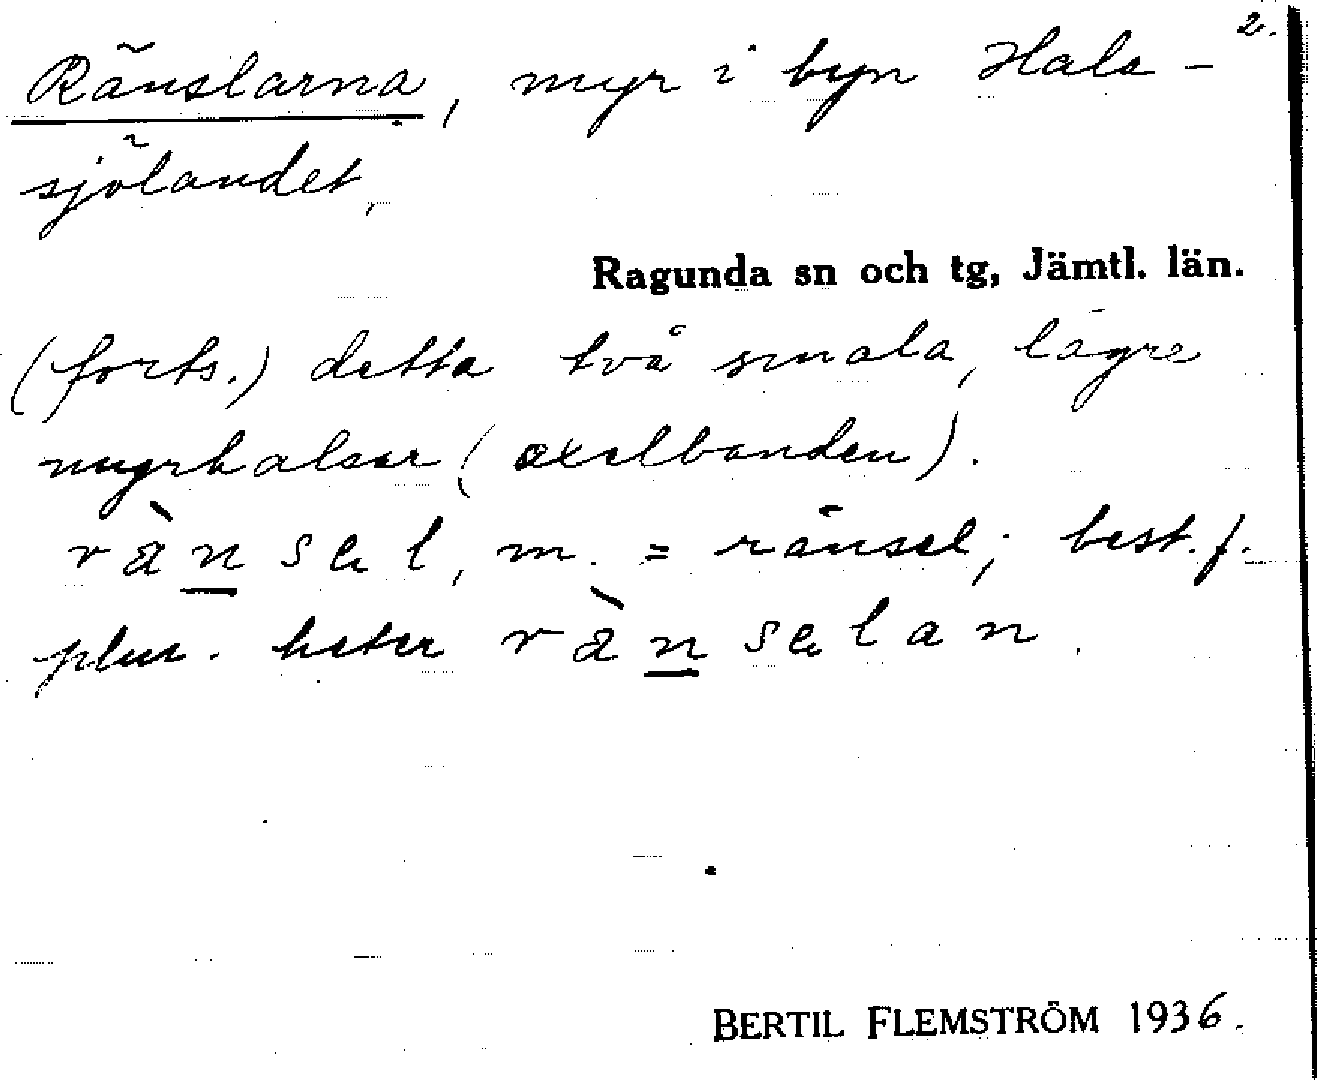 2.
Ränslarna, myr i byn Hals-
sjölandet,
Ragunda sn och tg, Jämtl. län.
(forts.) detta två smala, lägre
myrhalsar (axelbanden).
ràn̲səl, m. = ränsel; best. f.
plur. heter ràn̲səlan
BERTIL FLEMSTRÖM 1936.